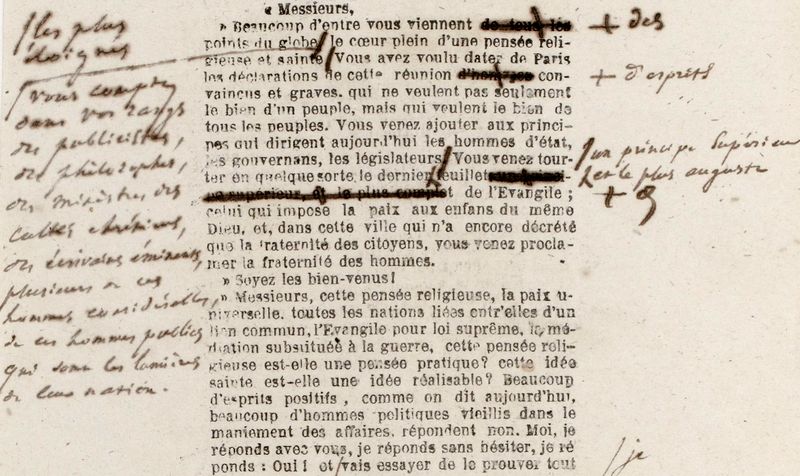 « Messieurs,
» Beaucoup d'entre vous viennent de tous les
points du globe, le cœur plein d'une pensée reli-
gieuse et sainte. Vous avez voulu dater de Paris
les déclarations de cette réunion d'hommes con-
vaincus et graves. qui ne veulent pas seulement
le bien d'un peuple, mais qui veulent le bien de
tous les peuples. Vous venez ajouter aux princi-
pes qui dirigent aujourd'hui les hommes d'état,
les gouvernans, les législateurs, Vous venez tour-
ter en quelque sorte le dernier feuillet un princi-
pe supérieur, et le plus complet de l'Evangile ;
celui qui impose la paix aux enfans du même
Dieu, et, dans cette ville qui n'a encore décrété
que la fraternité des citoyens, vous venez procla-
mer la fraternité des hommes.
» Soyez les bien-venus!
» Messieurs, cette pensée religieuse, la paix u-
niverselle, toutes les nations liées entr'elles d'un
lien commun, l'Evangile pour loi suprême, la mé-
diation substituée à la guerre, cette pensée reli-
gieuse est-elle une pensée pratique? cette idée
sainte est-elle une idée réalisable? Beaucoup
d'esprits positifs, comme on dit aujourd'hui,
beaucoup d'hommes politiques vieillis dans le
maniement des affaires, répondent non. Moi, je
réponds avec vous, je réponds sans hésiter, je ré
ponds : Oui! et vais essayer de le prouver tout
les plus
éloignés
vous comptez
dans vos rangs
des publicistes,
des philosophes,
des ministres des
cultes chrétiens,
des écrivains éminents,
plusieurs de ces
hommes considérables,
de ces hommes publics
qui sont les lumières
de leur nation.
+ des
+ d'esprits
un principe supérieur
et le plus auguste
+
/ je